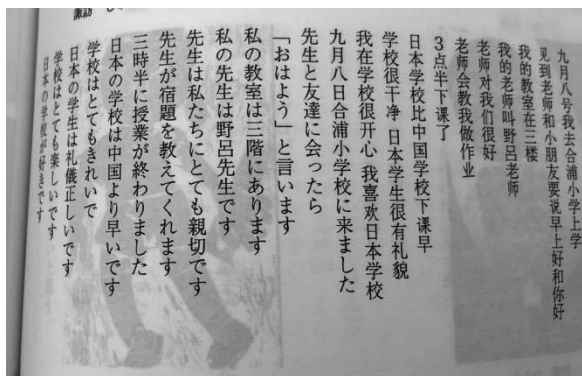 九月八号我去合浦小学上学
见到老师和小朋友要说早上好和你好
我的教室在三楼
我的老师叫野呂老师
老师对我们很好
老师会教我做作业
3点半下课了
日本学校比中国学校下课早
学校很干净 日本学生很有礼貌
我在学校很开心 我喜欢日本学校
九月八日合浦小学校に来ました
先生と友達に会ったら
「おはよう」と言います
私の教室は三階にあります
私の先生は野呂先生です
先生は私たちにとても親切です
先生が宿題を教えてくれます
三時半に授業が終わりました
日本の学校は中国より早いです
学校はとてもきれいで
日本の学生は礼儀正しいです
学校はとても楽しいです
日本の学校が好きです